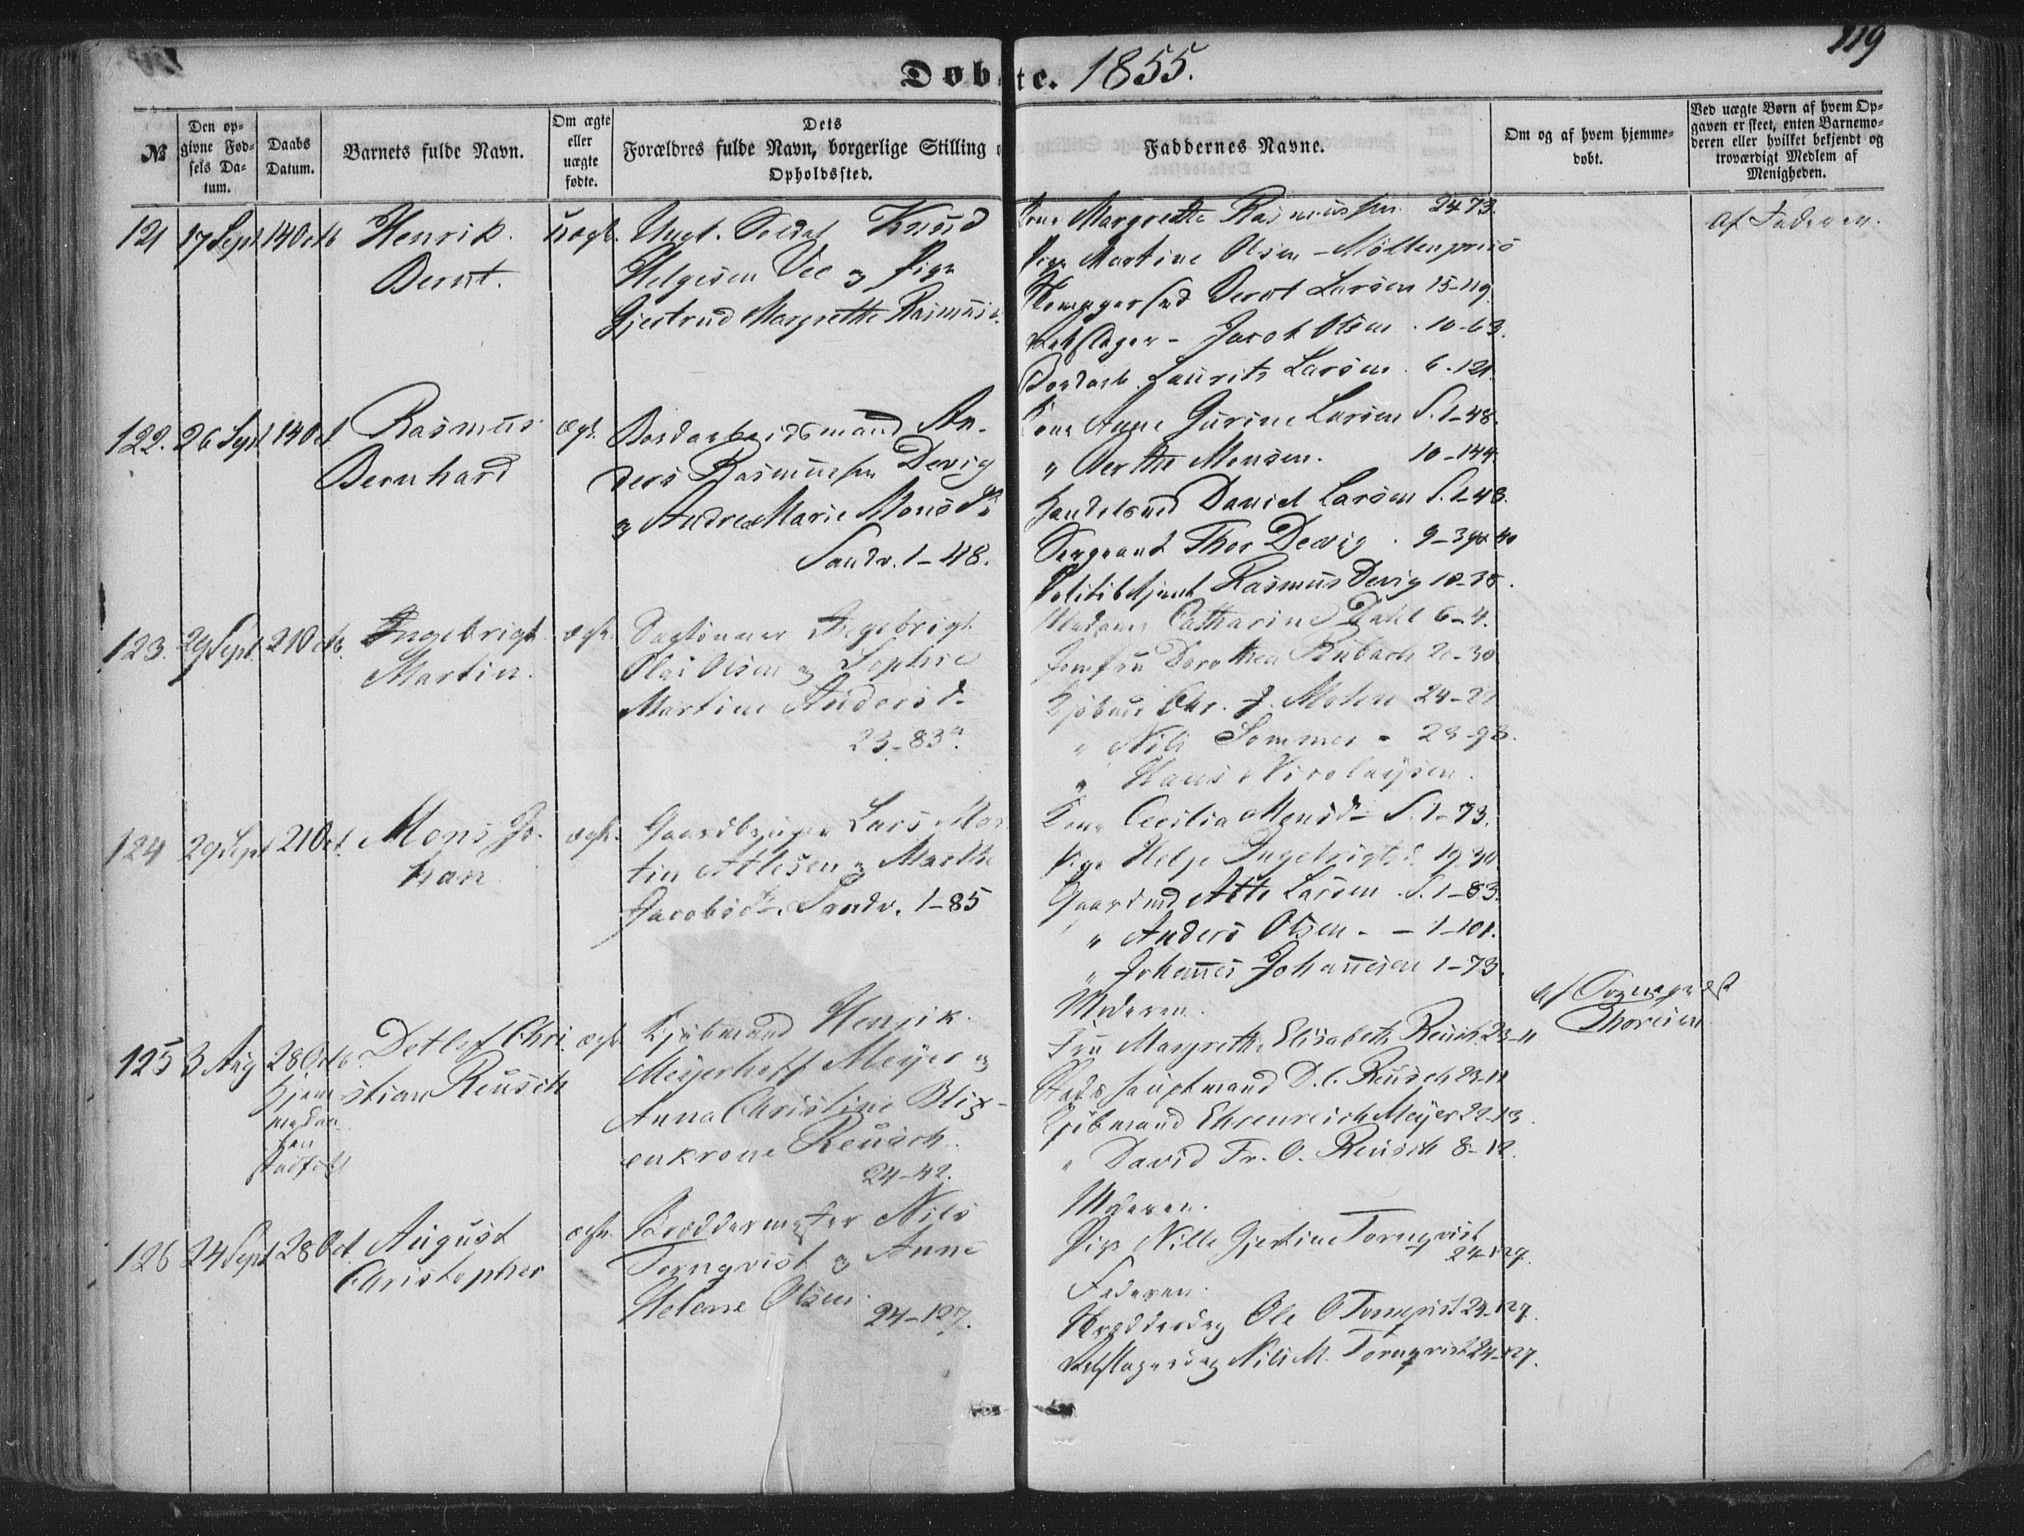 119
Døbte. 1855.
№
Den op-
givne Fød-
sels Da-
tum.
Daabs
Datum.
Barnets fulde Navn.
Om ægte
eller
uægte
fødte.
Dets
Forældres fulde Navn, borgerlige Stilling
Opholdssted.
Faddernes Navne.
Om og af hvem hjemme-
døbt.
Ved uægte Børn af hvem Op-
gaven er skeet, enten Barnemo-
deren eller hvilket bekjendt og
troværdigt Medlem af
Menigheden.
121 17 Sept 14 Octb Henrik
Bernt.
uægt. Ungk. Soldat Knud
Helgesen Vee og Pige
Gjertrud Margrethe Rasmus
Kone Margrethe Rasmussen 24-73.
Pige Martine Olsen - Møllenpriis
Bernt Larsen 15-119.
Jacob Olsen . 10-63.
Laurits Larsen . 6-121.
af Faderen.
122. 26 Sept 14 Oct Rasmus
Bernhard
ægt. Bordarbeidsmand An-
ders Rasmussen Devig
og Andrea Marie Monsd.
Sandv. 1-48.
Kone Anne Gurine Larsen S. 1-48.
" Berthe Monsen. 10-144.
Handelsmd Daniel Larsen S. 1-48.
Sergeant Thor Devig .
Politibetjent Rasmus Devig 10-38.
123. 29 Sept. 21 Octb. Ingebrigt
Martin.
ægt. Ingebrigt
Olai Olsen og Sophie
Martine Andersd.
23-83a.
Madame Catharine Dahl 6-4.
Jomfru Dorothea
Kjøbmd Chr. J. Mohn 24-21
" Nils Sommer - 23-98.
" Hans Nicolaysen.
124 29 Sept 21 Oct. Mons Jo-
han
ægt. Gaardbruger Lars Mar
tin Atlesen og Marthe
Jacobsdr. Sandv. 1-85
Kone Cecilia Monsdr S. 1-73.
Pige Helje Ingebrigtsd. 19-30
Gaardmd Atle Larsen . S. 1-83.
" Anders Olsen - - 1-101.
" Johannes Johannesen 1-73.
125 3 Aug 28 Octb.
Hjem
medaa
ben
stadf
Detlef Chri
stian Reusch
ægt. Kjøbmand Henrik
Meyerhoff Meyer og
Anna Christine Blix-
enkrone Reusch.
24-42.
Moderen.
Fru Margrethe Elisabeth Reusch 23-11
Stadshauptmand D. C. Reusch 23-11
Kjøbmand Ehrenreich Meyer 22-13.
" David Fr. O. Reusch 8-12.
af Sognepræst
Thoresen
126 24 Sept 28 Oct. August
Christopher
ægt. Brøddermester Nils
Tornqvist og Anne
Helene Olsen.
24-127.
Moderen.
Pige Nille Gjertine Tornqvist
24-127.
Faderen.
Ole O Tornqvist 24-127.
Nils M. Tornqvist 24-127.